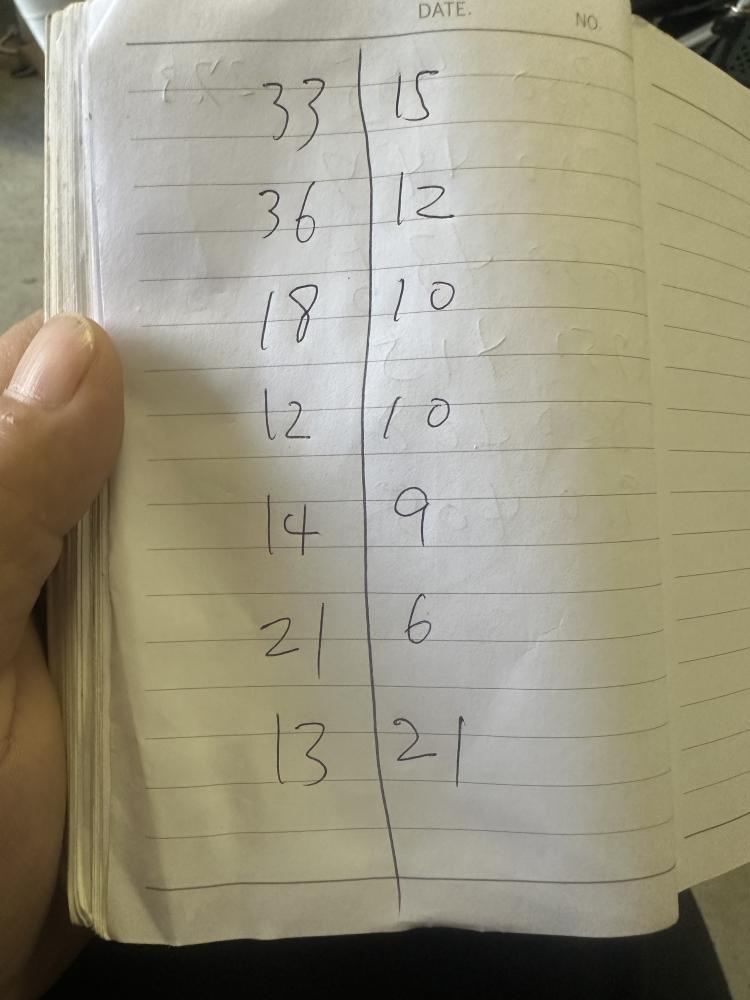 DATE.
NO.
33 15
36 12
18 10
12 10
14 9
21 6
13 21